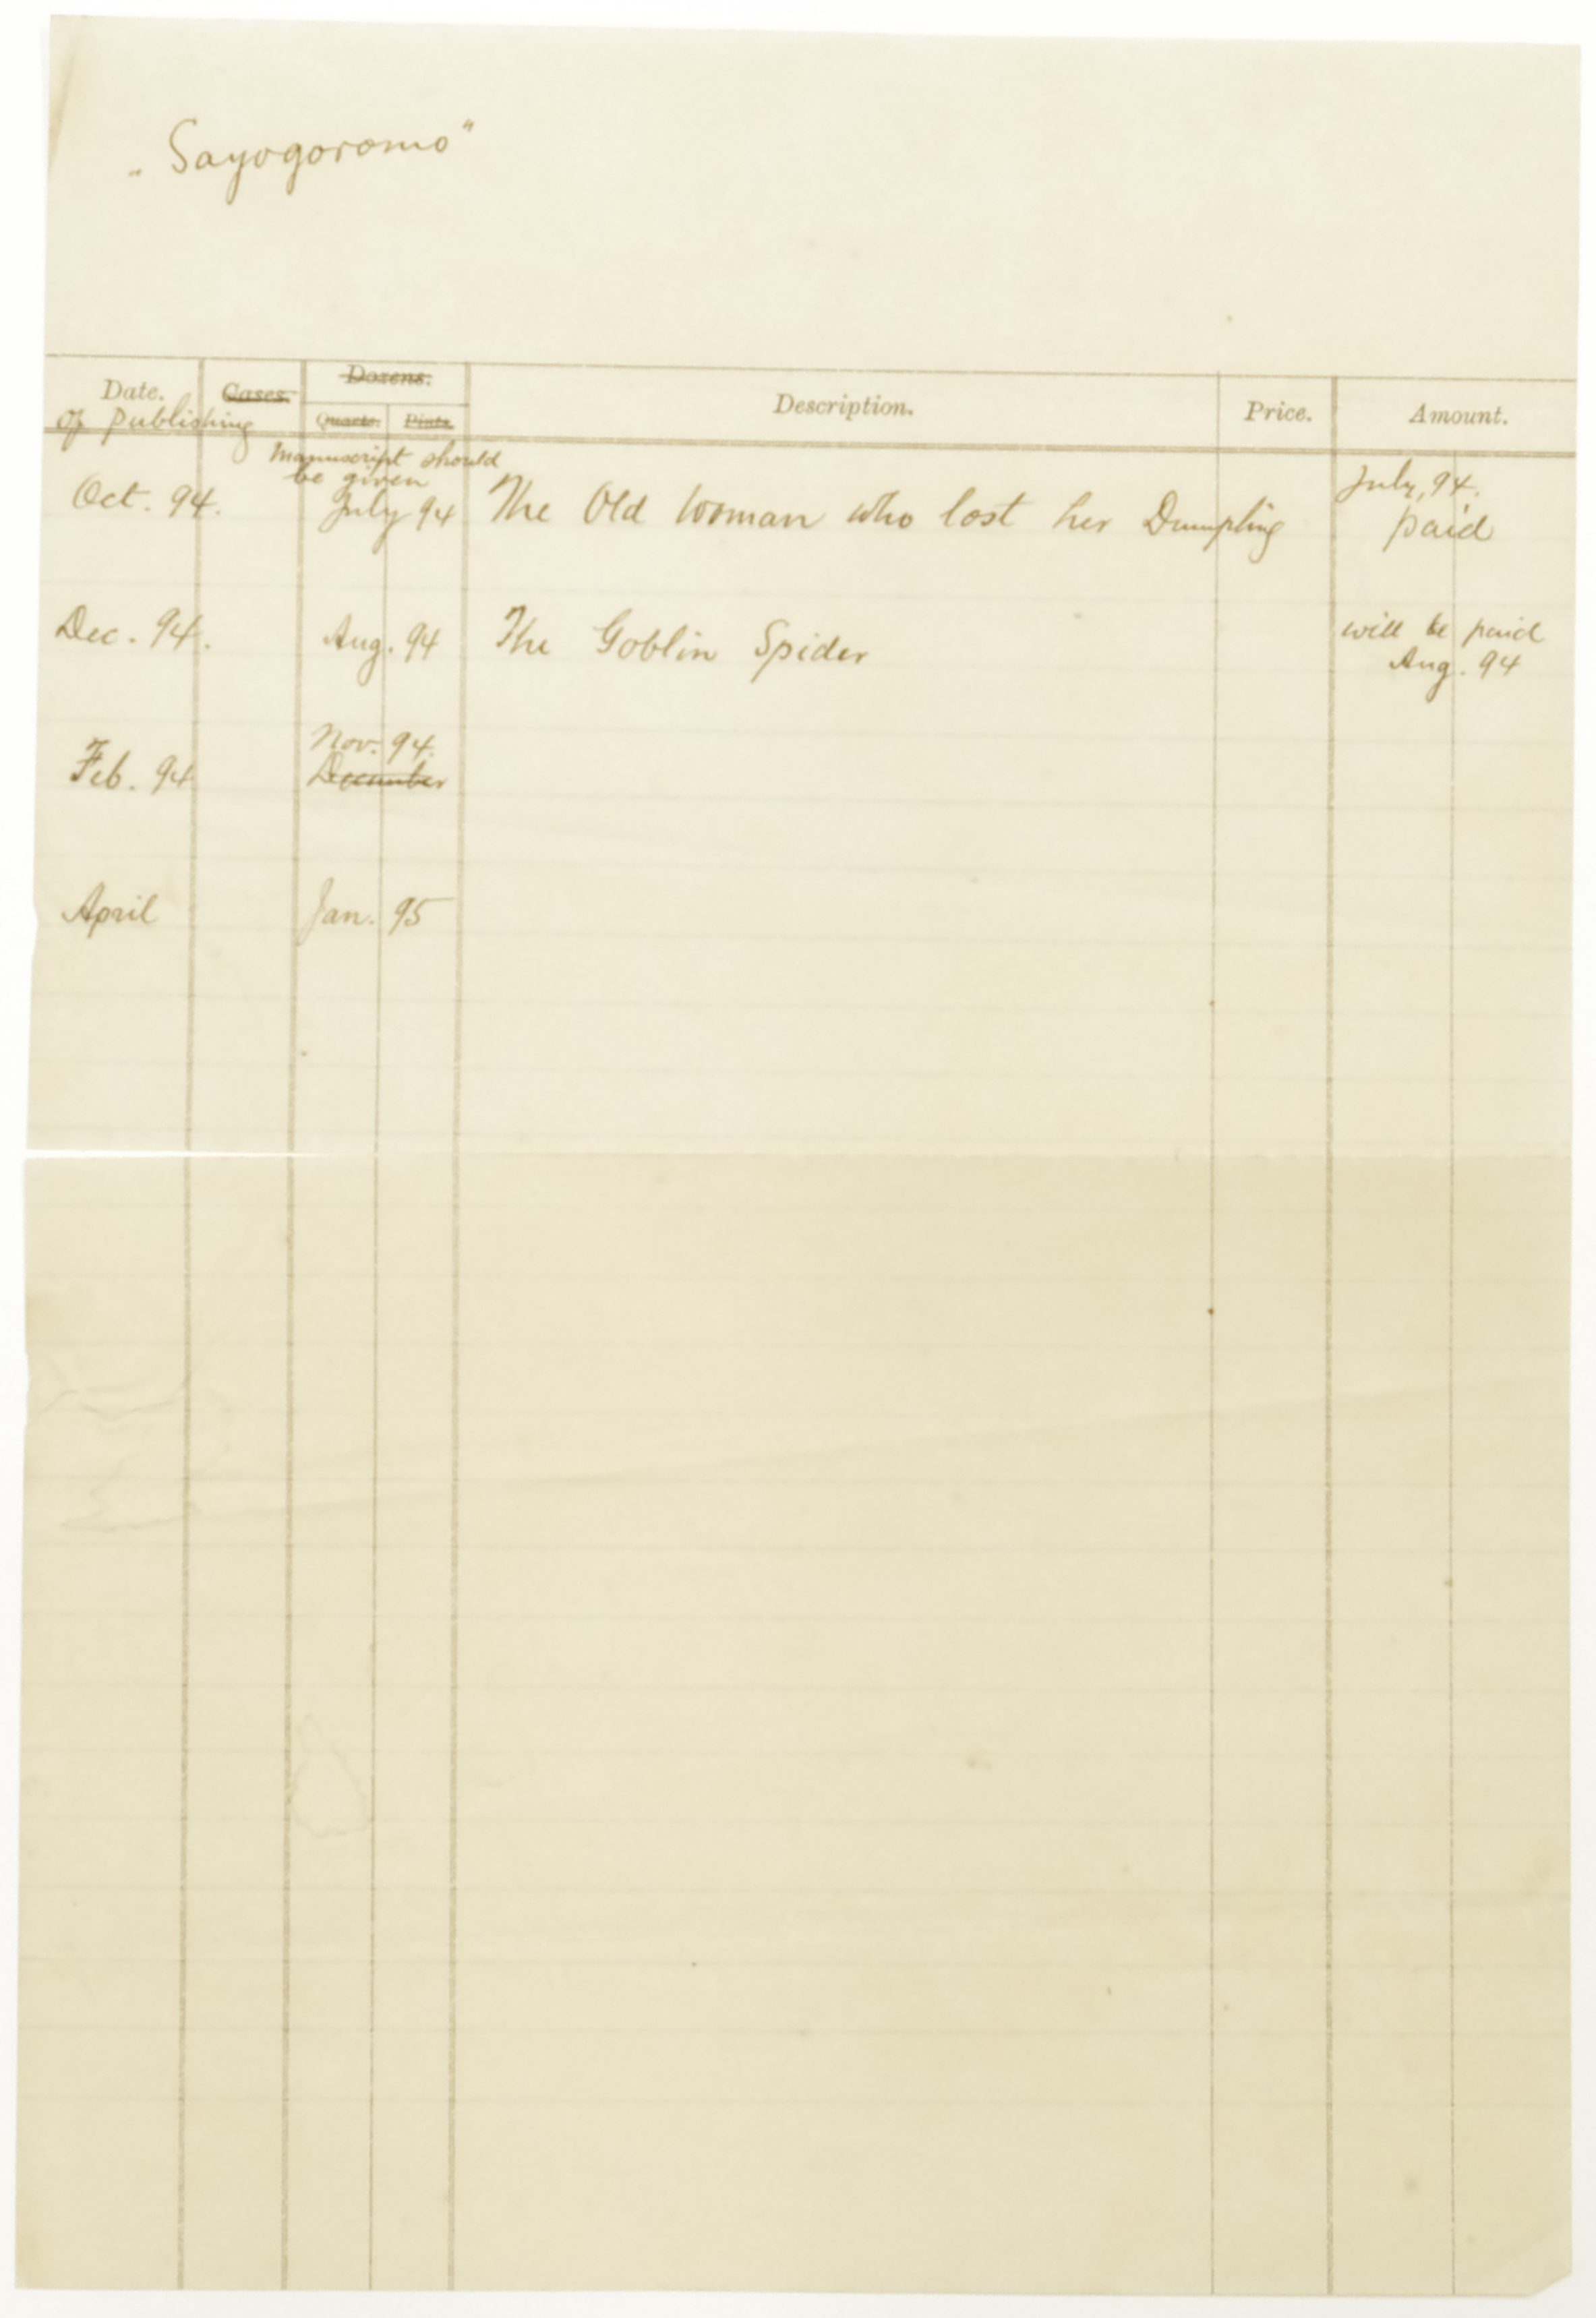 „Sayogoromo“
Dozens.
Date. Cases. Description. Price. Amount.
of publishing Quarts. Pints.
Manuscript should
be given
July, 94.
Oct. 94. July 94 The Old Woman who lost her Dumpling paid
Dec. 94. Aug. 94 The Goblin Spider will be paid
Aug. 94
Nov. 94.
Feb. 94 December
April Jan. 95